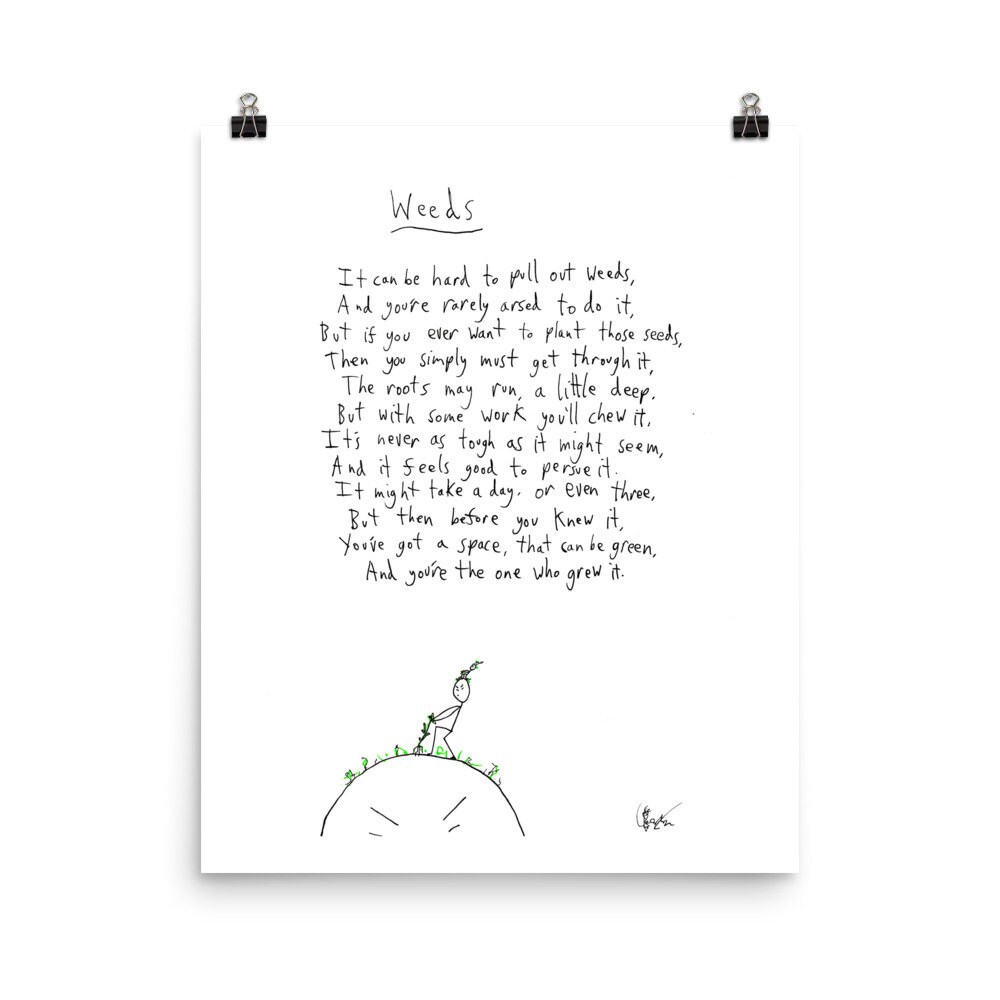 Weeds
It can be hard to pull out weeds,
And you're rarely arsed to do it,
But if you ever want to plant those seeds,
Then you simply must get through it,
The roots may run, a little deep.
But with some work you'll chew it,
It's never as tough as it might seem,
And it feels good to persue it.
It might take a day. or even three,
But then before you knew it,
You've got a space, that can be green,
And you're the one who grew it.